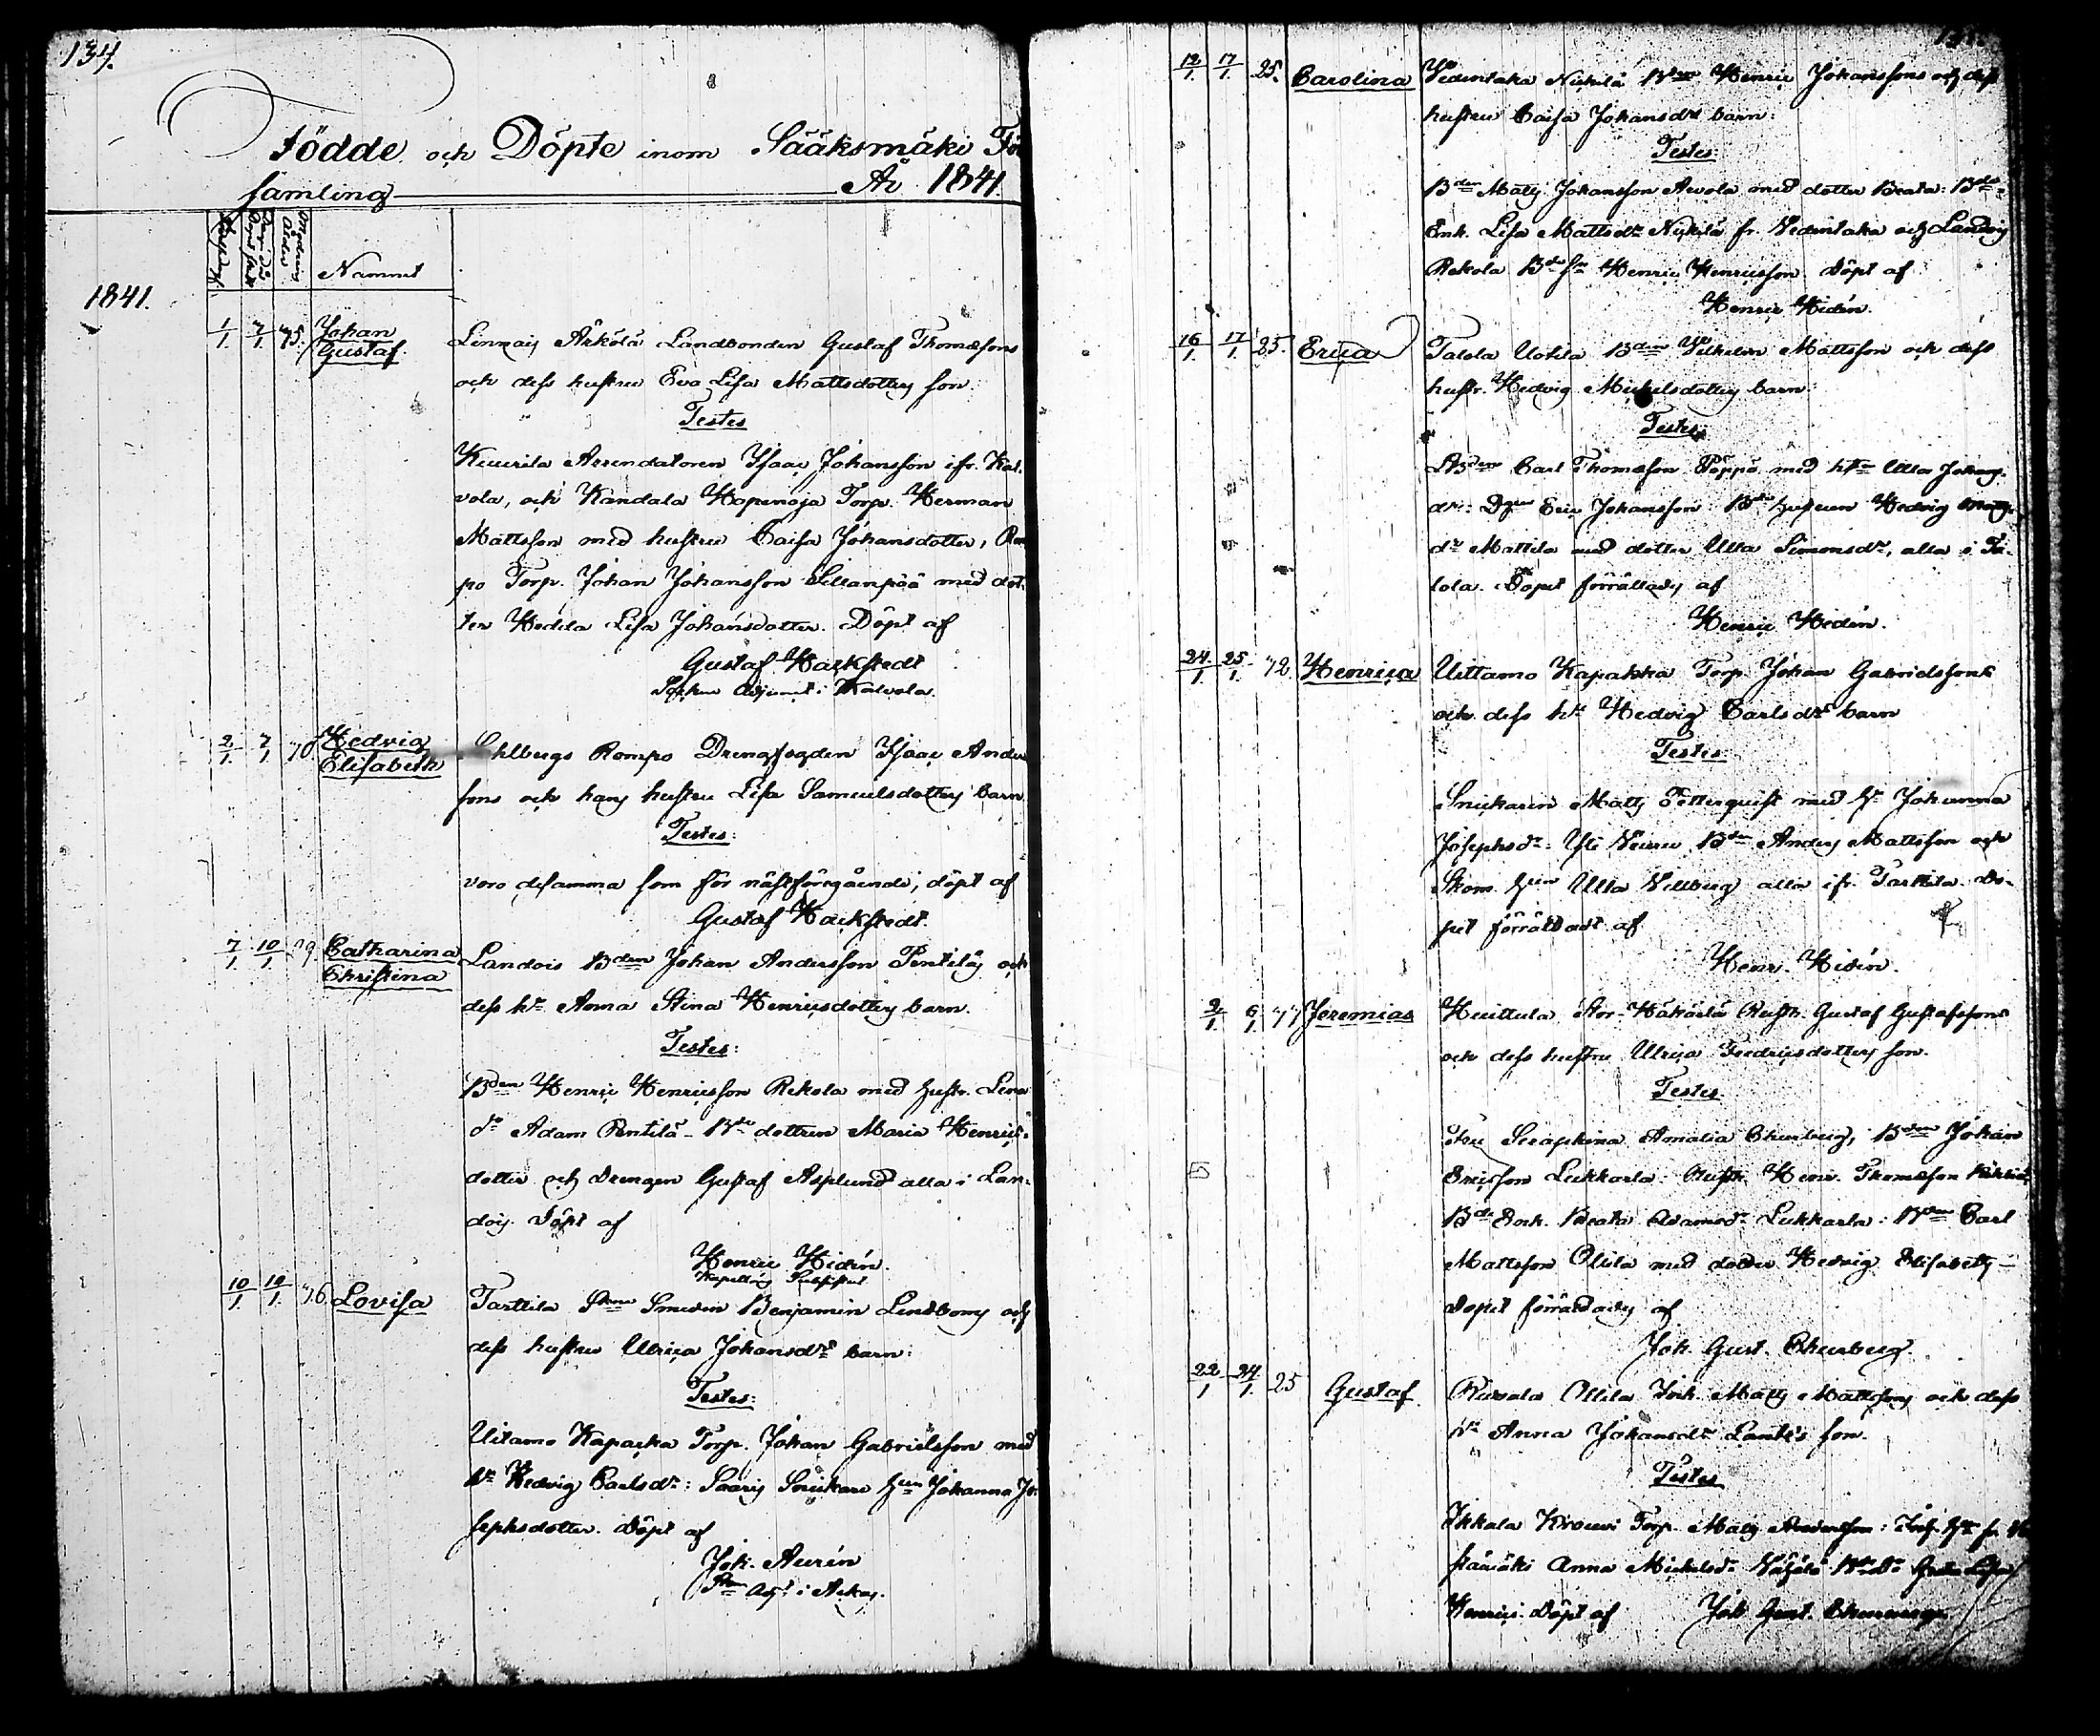 134.
Födde och Döpte inom Sääksmäki För
samling År 1841.
Nammet
1841.
1/1 7/1 45. Johan Gustaf. Linnais Äikölä Landbonden Gustaf Thomassons
och dess hustru Eva Lisa Mattsdotters son
Testes
Kuurila Arrendatoren Isaac Johansson ifr. Kal-
vola, och Kandala Hapenoja Torp. Herman
Mattsson med hustru Caisa Johansdotter,
po Torp. Johan Johansson Sillanpää med dot-
ter Hedda Lisa Johansdotter. Döpt af
Gustaf Hackstedt
Sockne Adjunct i Kalvola.
2/1 7/1 Hedvig Elisabeth Ahlbergs Rompo Drengfogden Isaac Anders
sons och hans hustru Lisa Samuelsdotters barn
Testes:
voro desamma som för nästföregående; döpt af
Gustaf Hackstedt.
7/1 10/1 29. Catharina Christina Landois Bden Johan Andersson Pentiläs och
dess hu Anna Stina Henricsdotters barn.
Testes:
Bden Henric Henricsson Rekola med hustr. Lena
do Adam Pentilä Bde dottren Maria Henrics
dotter och Drengen Gustaf Asplund alla i Lan-
dois. Döpt af
Henric Hidén.
10/1 10/1 36. Lovisa Tarttila Skne Smeden Benjamin Lindboms och
dess hustru Ulrica Johansdrs barn:
Testes:
Uitamo Kapacka Torp. Johan Gabrielsson med
hu Hedvig Carlsdr: Saaris Snickare Johanna Jo-
sephsdotter. Döpt af
Joh. Aurén
Skne Adjt i Ackas.
12/1 17/1 25. Carolina Vedentaka Nickilä Bden Henric Johanssons och dess
hustru Caisa Johansdrs barn:
Testes:
Bden Matts Johansson Arvola med dotter Beata: Bde-
Enk. Lisa Mattsdr Nickilä fr. Vedentaka och Landois
Rekola Bde sn Henric Henricsson. Döpt af
Henric Hidén.
16/1 17/1 25. Erica Talola Uotila Bden Wilhelm Mattsson och dess
hustr. Hedvig Michelsdotters barn:
Testes:
Bden Carl Thomasson Pöppö med hu Ulla Johans-
dr: Eric Johansson Bde hustrun Hedvig Matts
dr Mattila med dotter Ulla Simonsdr, alla i Ta-
lola. Dopet förrättades af
Henric Hidén.
24/1 25/1 42. Henrica Uittamo Kapakka Torp. Johan Gabrielssons
och dess hu Hedvig Carlsdrs barn
Testes:
Snickaren Matts Petterquist med hu Johanna
Josephsdr: Yli Bden Anders Mattsson och
Ulla Vellberg alla ifr. Tarttila. Do-
pet förrättadt af
Henr. Hidén.
2/1 6/1 47 Jeremias Huittula Stor-Häkärlä Rusth. Gustaf Gustafssons
och dess hustru Ulrica Fredricsdotters son.
Testes
Fru Seraphina Amalia Churberg, Bden Johan
Ericsson Lukkarla: Rusth. Henr. Thomasson
Bde Enk. Beata Adamsdr Lukkarla: Bden Carl
Mattsson Ollila med dotter Hedvig Elisabeth —
Dopet förrättades af
Joh. Gust. Churberg.
22/1 24/1 25 Gustaf. Ritvala Ollila Inh. Matts Mattssons och dess
hu Anna Johansdr son.
Testes
Ikkala Torp. Matts Andersson:
Anna Michelsdr
Henrics. Döpt af Joh Gust. Churberg.